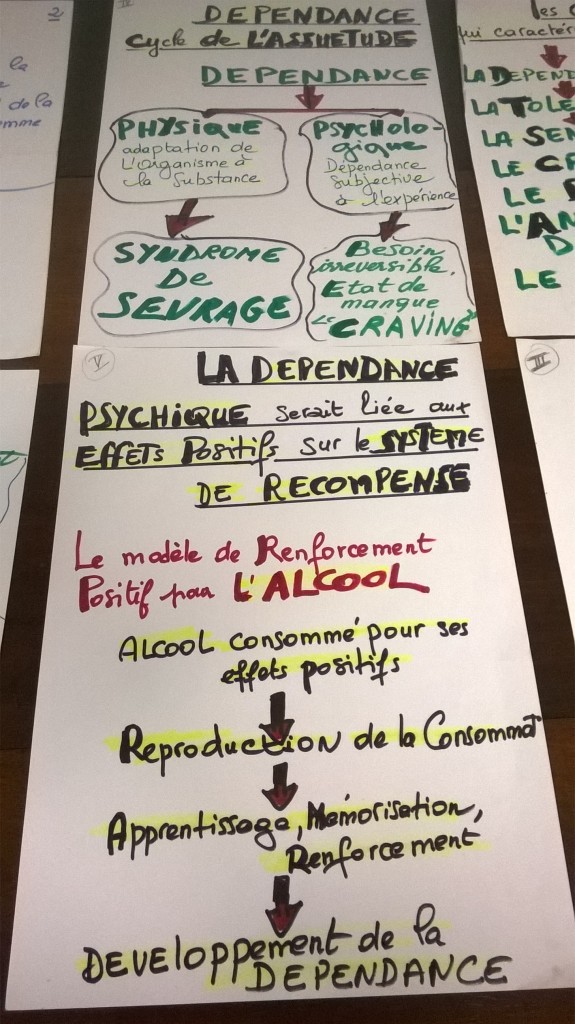 2
la
de la
omme
IV
DEPENDANCE
Cycle de L'ASSUETUDE
DEPENDANCE
PHYSIQUE
adaptation de
L'Organisme à
la Substance
PSYCHOLO-
gique
Dépendance
Subjective
à l'expérience
SYNDROME
De
SEVRAGE
Besoin
irreversible,
Etat de
manque
Le "CRAVING"
les
qui caractér
LA DEPEND
LA TOLE
LA SEN
LE
LE
L'AN
D
LE
V
LA DEPENDANCE
PSYCHIQUE serait liée aux
EFFETS Positifs sur le SYSTEME
DE RECOMPENSE
Le modèle de Renforcement
Positif par L'ALCOOL
ALCOOL consommé pour ses
effets positifs
Reproduction de la Consommat°
Apprentissage, Mémorisation,
Renforcement
DEVELOPPEMENT de la
DEPENDANCE
III